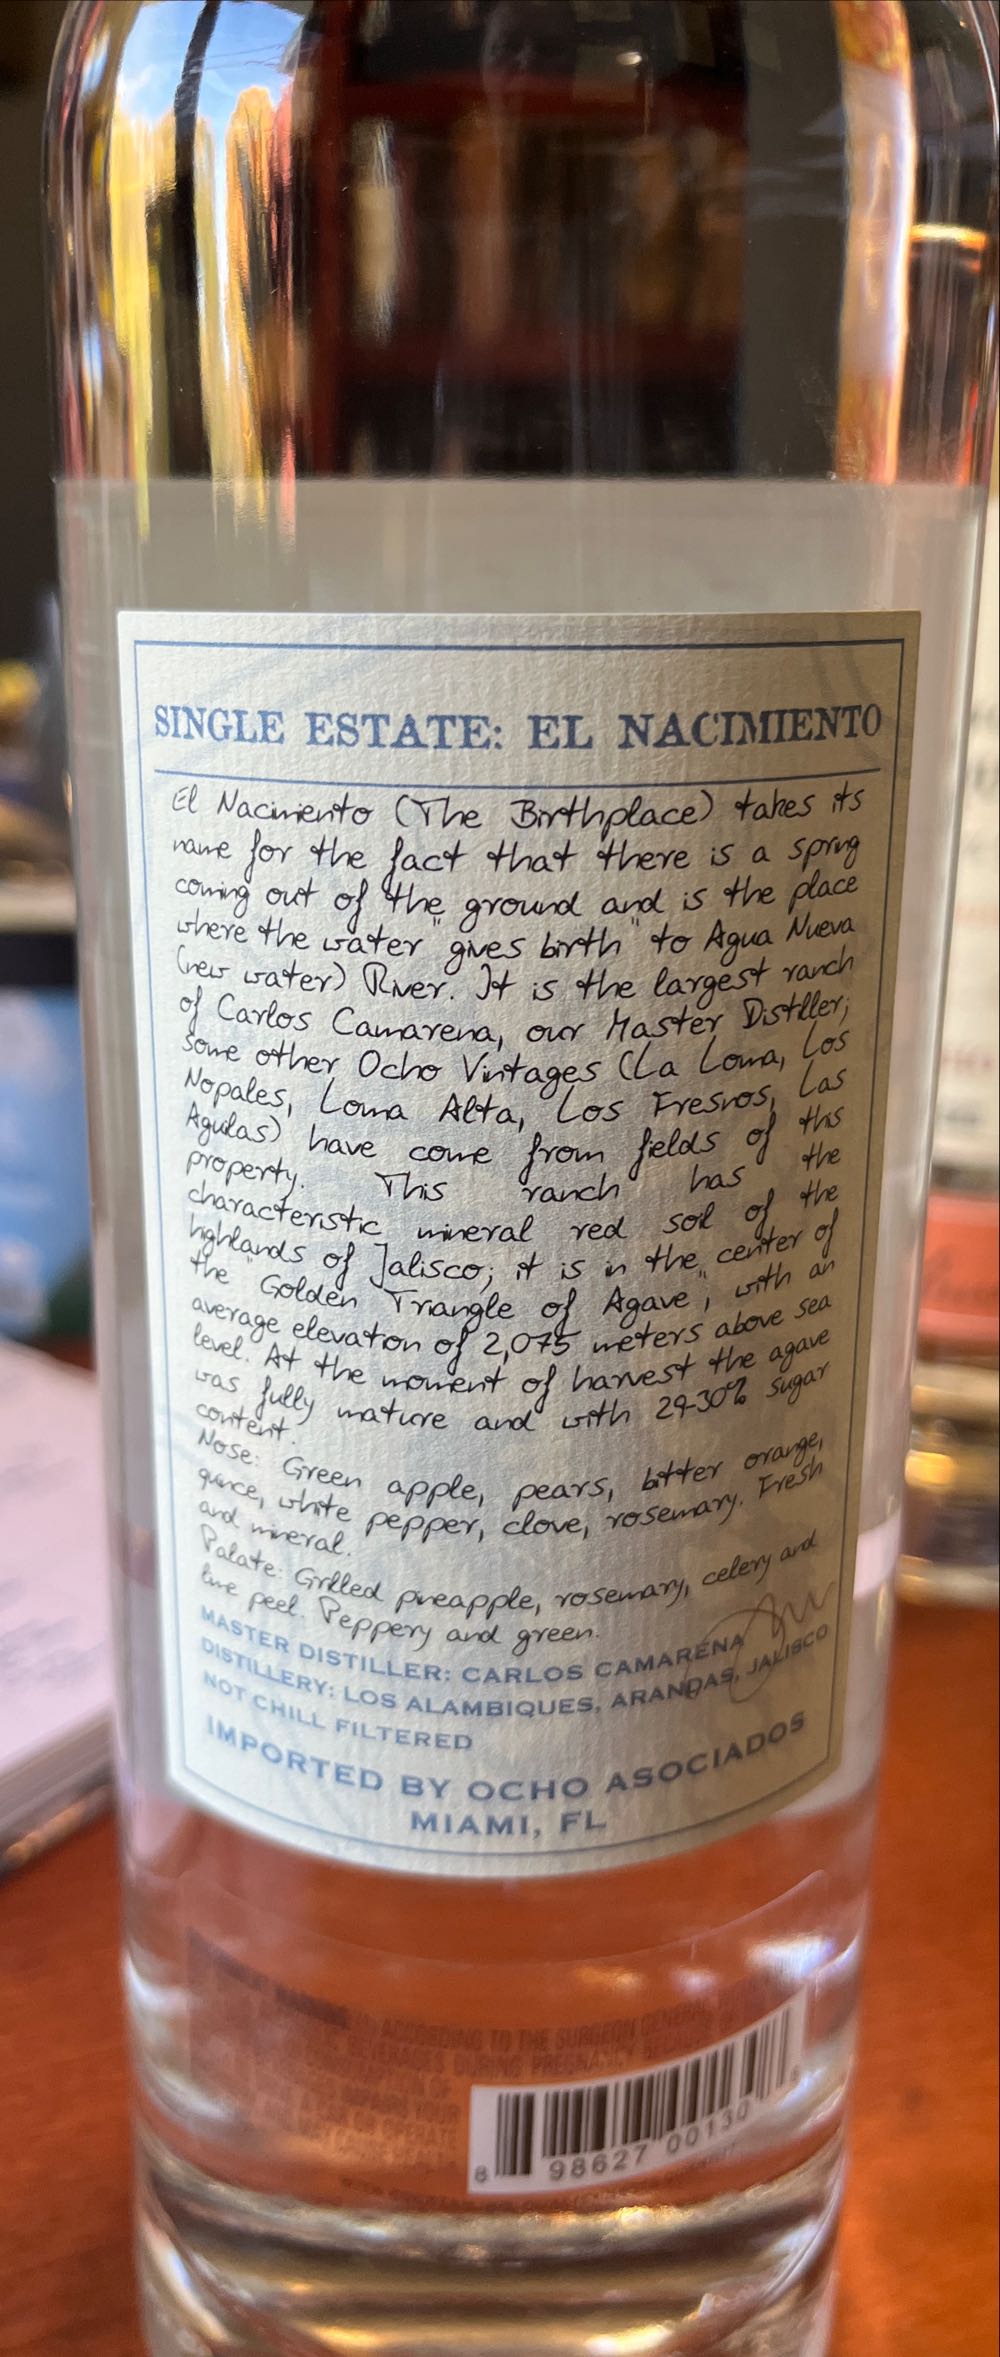 SINGLE ESTATE: EL NACIMIENTO
El Nacimiento (The Birthplace) takes its
name for the fact that there is a spring
coming out of the ground and is the place
where the water "gives birth" to Agua Nueva
(new water) River. It is the largest ranch
of Carlos Camarena, our Master Distiller;
some other Ocho Vintages (La Loma, Los
Nopales, Loma Alta, Los Fresnos, Las
Aguilas) have come from fields of this
property. This ranch has the
characteristic mineral red soil of the
highlands of Jalisco; it is in the center of
the "Golden Triangle of Agave", with an
average elevation of 2,075 meters above sea
level. At the moment of harvest the agave
was fully mature and with 29-30% sugar
content.
Nose: Green apple, pears, bitter orange,
quince, white pepper, clove, rosemary. Fresh
and mineral.
Palate: Grilled pineapple, rosemary, celery and
lime peel. Peppery and green.
MASTER DISTILLER: CARLOS CAMARENA
DISTILLERY: LOS ALAMBIQUES, ARANDAS, JALISCO
NOT CHILL FILTERED
IMPORTED BY OCHO ASOCIADOS
MIAMI, FL
ACCORDING TO THE SURGEON GENERAL
BEVERAGES DURING PREGNANCY
OR OPERATE
8 98627 00130 6